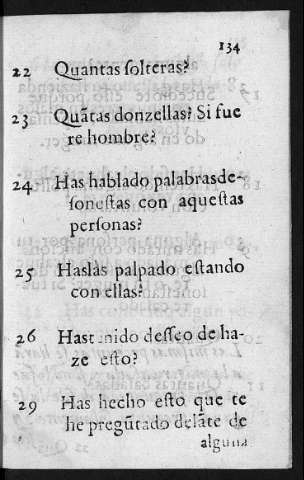 134
22 Quantas ſolteras?
23 Quãtas donzellas? Si fue
re hombre?
24 Has hablado palabras de-
ſoneſtas con aqueſtas
perſonas?
25 Haslàs palpado eſtando
con ellas?
26 Has tenido deſſeo de ha-
ze eſto?
29 Has hecho eſto que te
he pregũtado delãte de
alguna